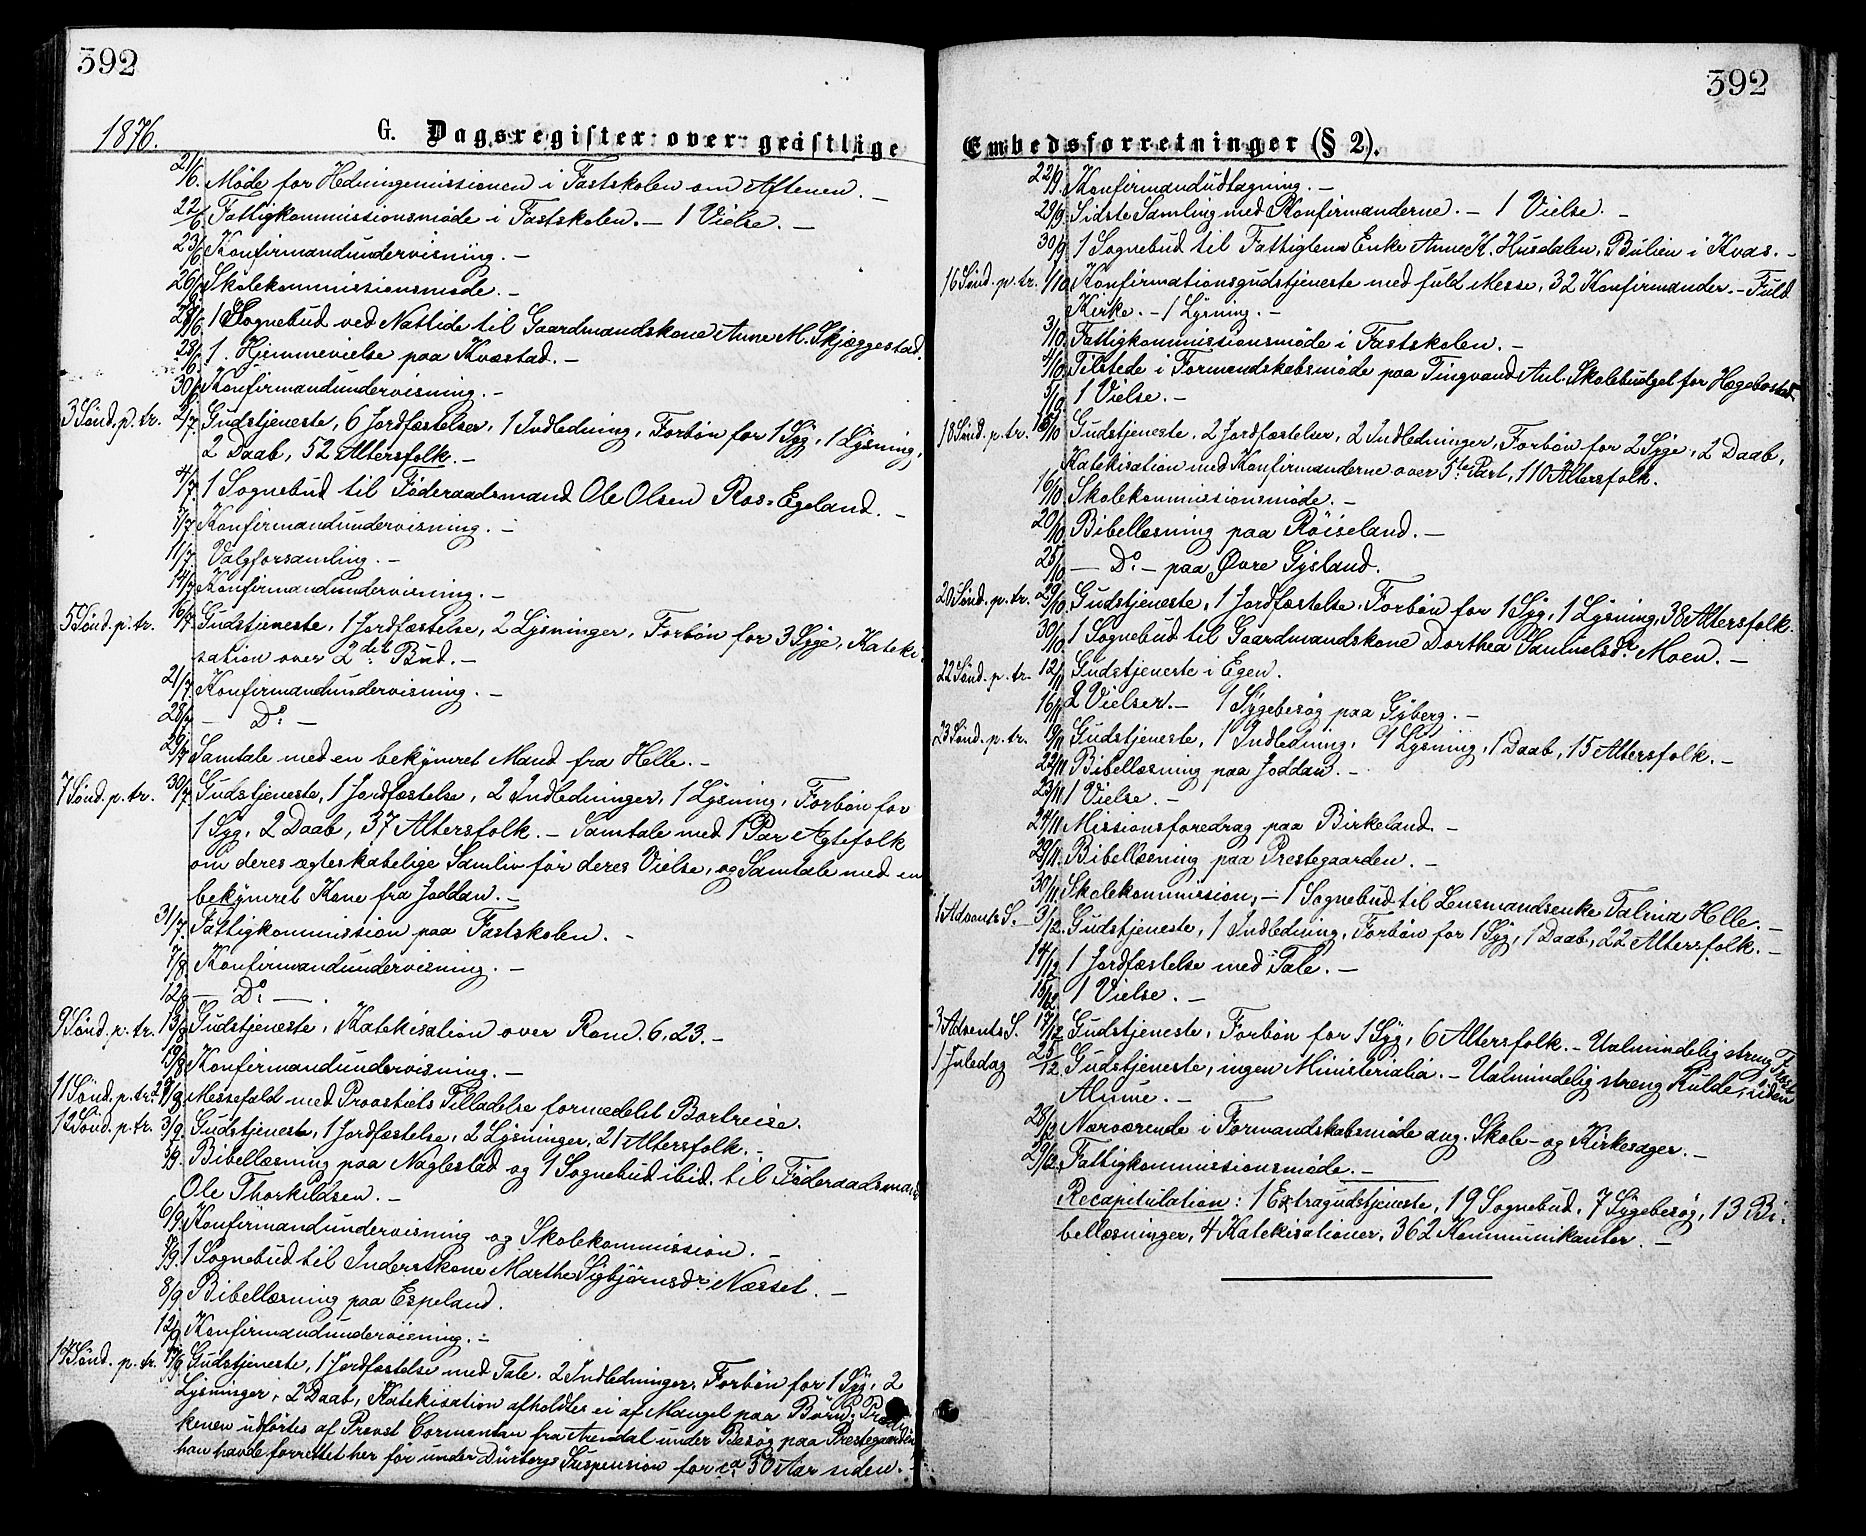 392
1876. G. Dagsregister over geistlige
21/6. Møde for Hedningemissionen i Fastskolen om Aftenen. –
22/6. Fattigkommissionsmøde i Fastskolen. – 1 Vielse. –
23/6. Konfirmandundervisning. –
26/6. Skolekommissionsmøde. –
1 Sognebud ved Nattide til Gaardmandskone Anne M. Skjæggestad.
28/6. 1 Hjemmevielse paa Kvæstad. –
30/6. Konfirmandundervisning. –
3 Sønd. p. tr. 2/7. Gudstjeneste, 6 Jordfæstelser, 1 Indledning, Forbøn for 1 Syg, 1 Lysning,
2 Daab, 52 Altersfolk. –
4/7. 1 Sognebud til Føderaadsmand Ole Olsen Ros-Egeland. –
5/7. Konfirmandundervisning. –
11/7. Valgforsamling. –
14/7. Konfirmandundervisning. –
5 Sønd. p. tr. 16/7. Gudstjeneste, 1 Jordfæstelse, 2 Lysninger, Forbøn for 3 Syge, Kateki-
sation over 2det Bud. –
21/7. Konfirmandundervisning. –
28/7. – Do. –
29/7. Samtale med en bekymret Mand fra Helle. –
7 Sønd. p. tr. 30/7. Gudstjeneste, 1 Jordfæstelse, 2 Indledninger, 1 Lysning, Forbøn for
1 Syg, 2 Daab, 37 Altersfolk. – Samtale med 1 Par Ægtefolk
om deres ægteskabelige Samliv før deres Vielse, og Samtale med en
bekymret Kone fra Joddan. –
31/7. Fattigkommission paa Fastskolen. –
7/8. Konfirmandundervisning. –
12/8 – Do. –
9 Sønd. p. tr. 13/8. Gudstjeneste, Katekisation over Rom. 6, 23. –
19/8. Konfirmandundervisning. –
11 Sønd. p. tr. 27/8. Messefald med Provstiets Tilladelse formedelst Bortreise.
12 Sønd. p. tr. 3/9. Gudstjeneste, 1 Jordfæstelse, 2 Lysninger, 21 Altersfolk. –
5/9. Bibellæsning paa Naglestad og 1 Sognebud ibid. til Føderaadsmand
Ole Thorkildsen. –
6/9. Konfirmandundervisning og Skolekommission. –
7/9. 1 Sognebud til Inderstkone Marthe Sigbjørnsdr. Næsset. –
8/9. Bibellæsning paa Espeland.
12/9. Konfirmandundervisning. –
Gudstjeneste, 1 Jordfæstelse med Tale, 2 Indledninger, Forbøn for 1 Syg, 2
Lysninger, 2 Daab, Katekisation afholdtes ei af Mangel paa Børn; Prædi-
kenen udførtes af Provst Cormontan fra Arendal under Besøg paa Prestegaarden
han havde forrettet her før under Suspension for ca 30 Aar siden. –
392
Embedsforretninger (§ 2).
22/9. Konfirmandudtagning. –
29/9. Sidste Samling med Konfirmanderne. – 1 Vielse. –
30/9. 1 Sognebud til Fattiglem Enke Anne K. Husdalen, i Kvas. –
16 Sønd. p. tr. 1/10. Konfirmationsgudstjeneste med fuld Messe, 32 Konfirmander. – Fuld
Kirke. – 1 Lysning. –
3/10. Fattigkommissionsmøde i Fastskolen. –
4/10. Tilstede i Formandskabsmøde paa Tingvand Anl. Skolebudget for Hægebostad.
5/10. 1 Vielse. –
18 Sønd. p. tr. 15/10. Gudstjeneste, 2 Jordfæstelser, 2 Indledninger, Forbøn for 2 Syge, 2 Daab,
Katekisation med Konfirmanderne over 5te Part, 110 Altersfolk.
16/10. Skolekommissionsmøde. –
20/10. Bibellæsning paa Røiseland. –
25/10. – Do. – paa Øvre Gysland.
20 Sønd. p. tr. 29/10. Gudstjeneste, 1 Jordfæstelse, Forbøn for 1 Syg, 1 Lysning, 38 Altersfolk.
30/10. 1 Sognebud til Gaardmandskone Dorthea Samuelsdr. Moen. –
22 Sønd. p. tr. 12/11. Gudstjeneste i Egen.
16/11. 2 Vielser. – 1 Sygebesøg paa Gyberg. –
23 Sønd. p. tr. 19/11. Gudstjeneste, 1 Indledning, 1 Lysning, 1 Daab, 15 Altersfolk. –
22/11. Bibellæsning paa Joddan. –
23/11. 1 Vielse. –
24/11. Missionsforedrag paa Birkeland. –
29/11. Bibellæsning paa Prestegaarden. –
30/11. Skolekommission, – 1 Sognebud til Lensmandsenke Talina Helle. –
1 Advents S. 3/12. Gudstjeneste, 1 Indledning, Forbøn for 1 Syg, 1 Daab, 22 Altersfolk. –
14/12. 1 Jordfæstelse med Tale. –
15/12. 1 Vielse. –
3 Advents S. 17/12. Gudstjeneste, Forbøn for 1 Syg, 6 Altersfolk. – Ualmindelig streng Frost
1 Juledag 25/12. Gudstjeneste, ingen Ministerialia. – Ualmindelig streng Kulde, uden
Almue. –
28/12. Nærværende i Formandskabsmøde ang. Skole- og Kirkesager. –
29/12. Fattigkommissionsmøde. –
Recapitulation: 1 Extragudstjeneste, 19 Sognebud, 7 Sygebesøg, 13 Bi-
bellæsninger, 4 Katekisationer, 362 Kommunikanter. –